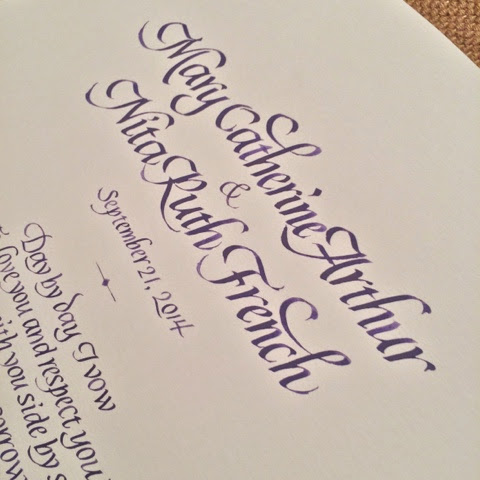 Mary Catherine Arthur
&
Nita Ruth French
September 21, 2014
Day by day I vow
love you and respect you
with you side by